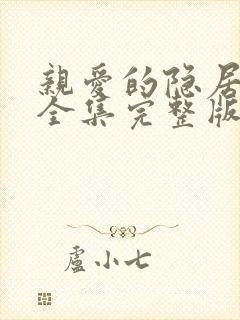 親愛的隐居
全集完整版
盧小七